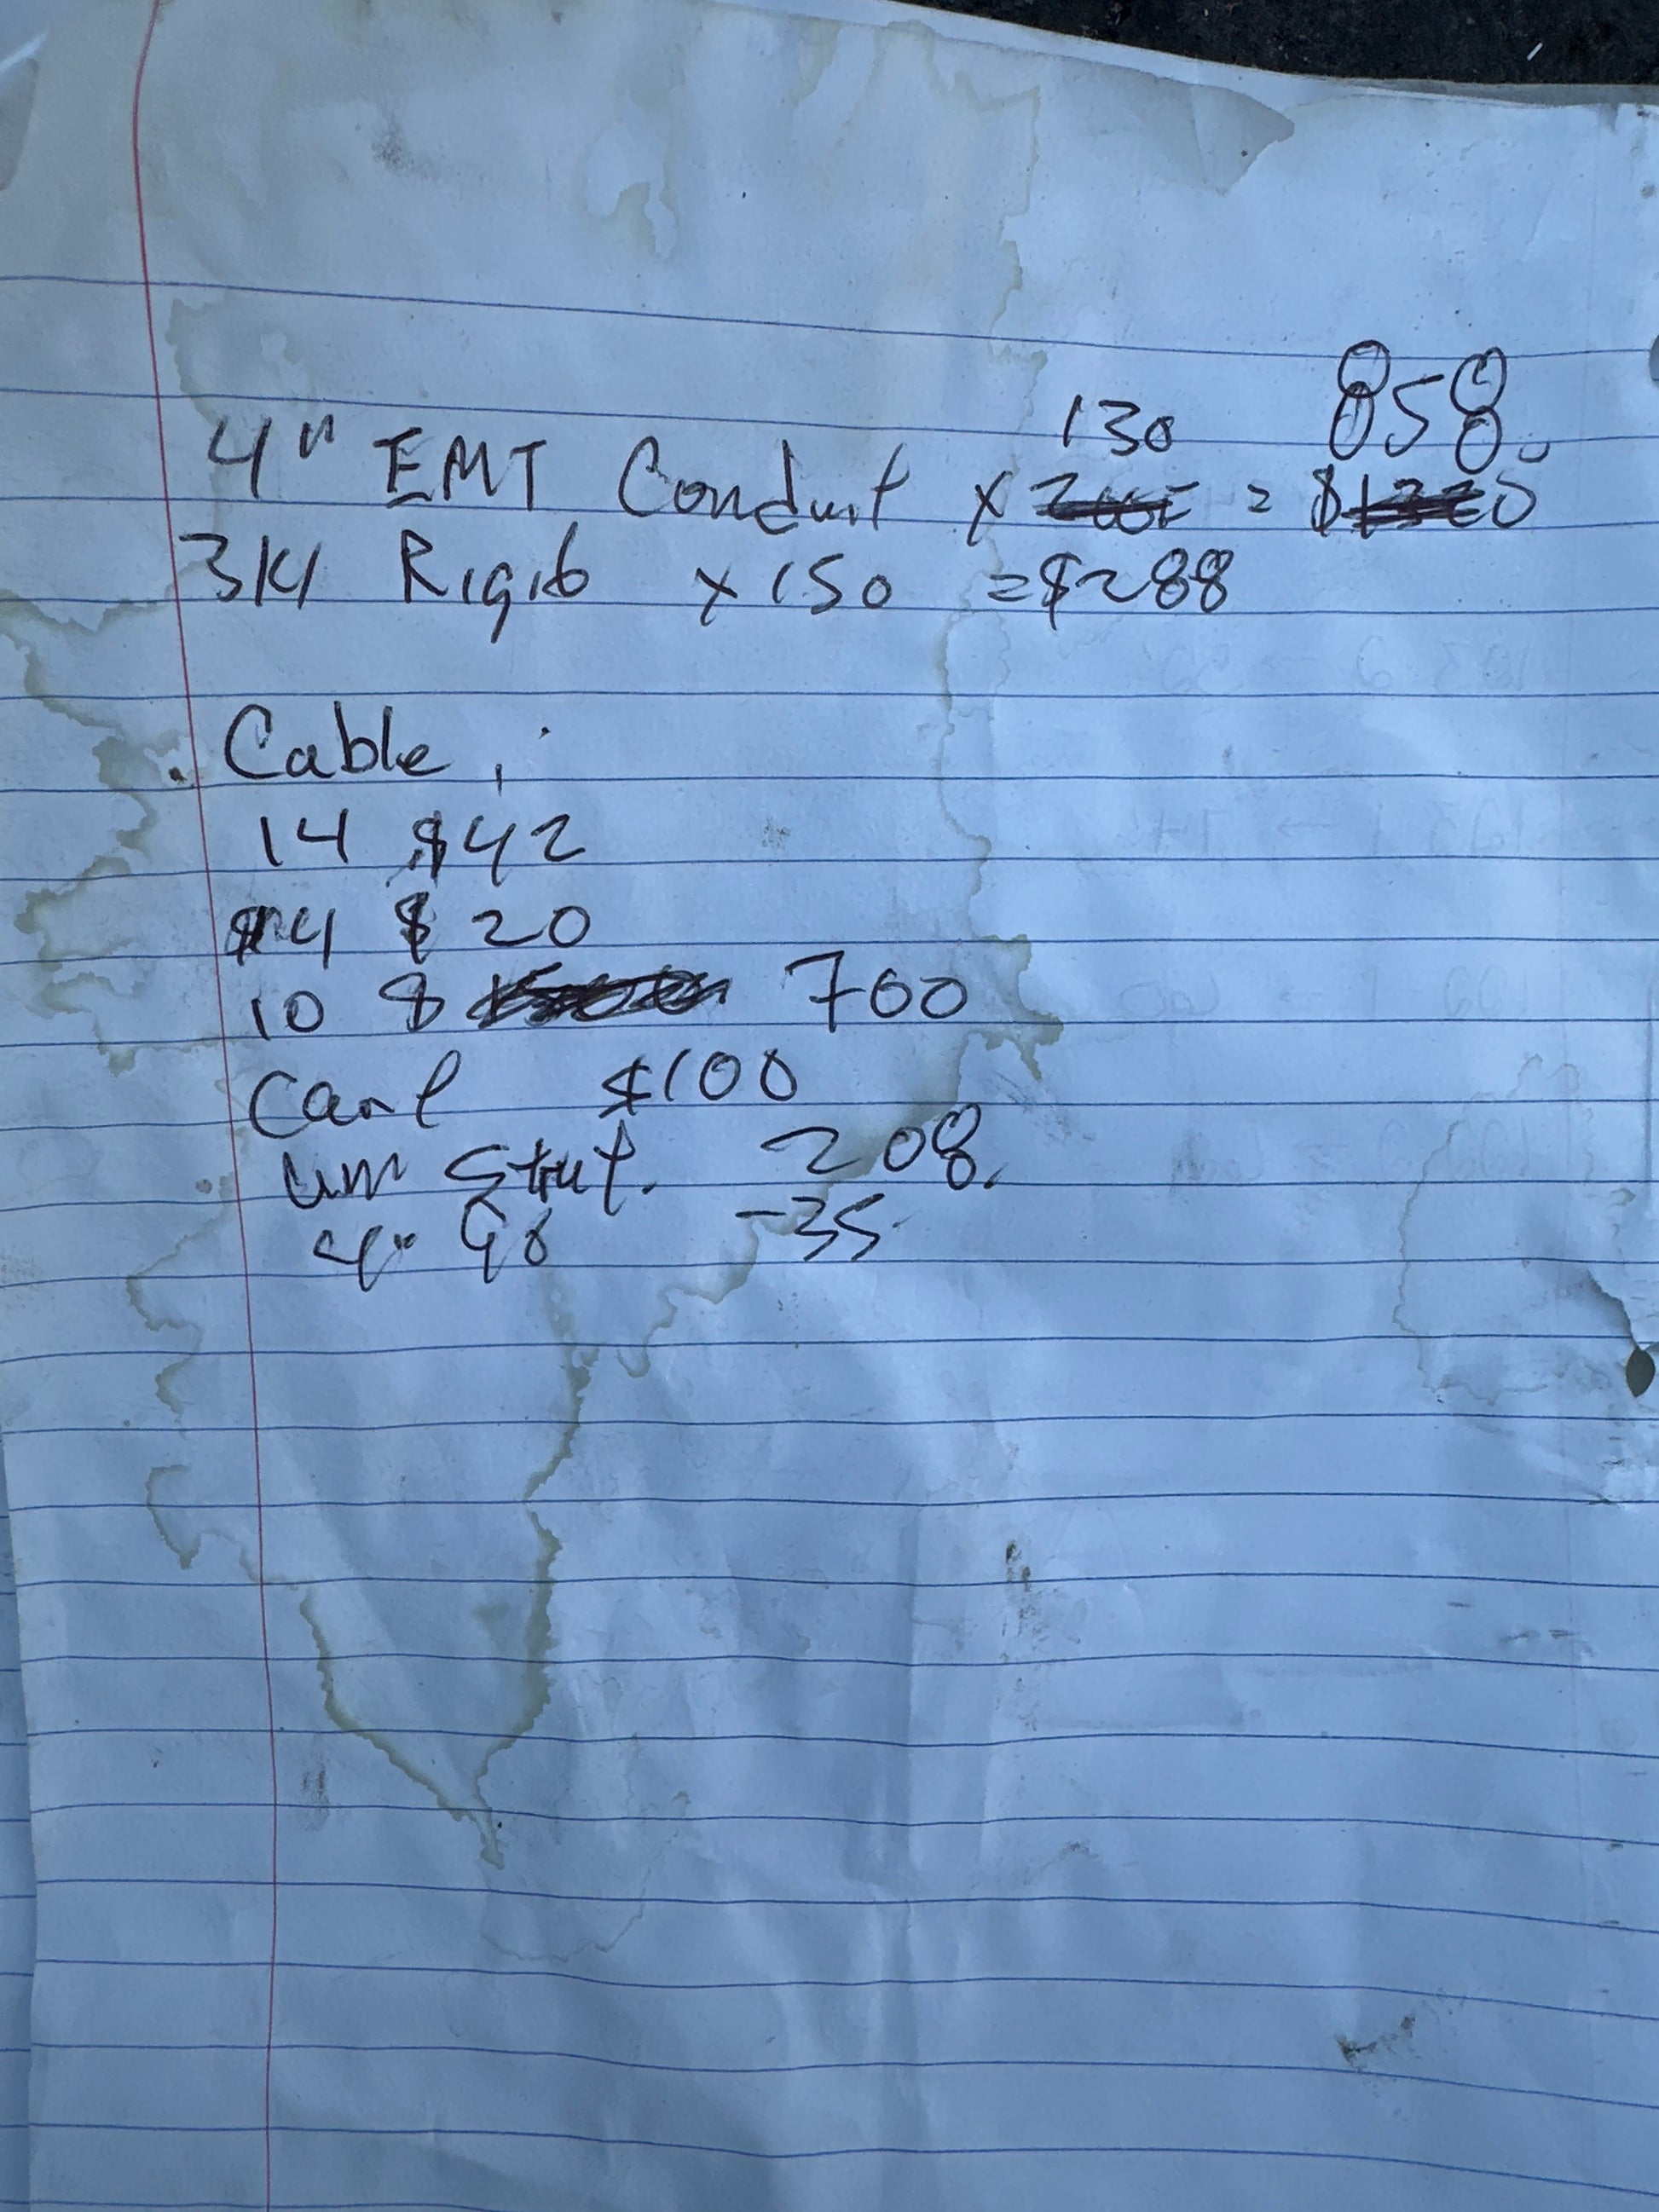 130 858.
4" EMT Conduit x = $
3/4 Rigid x 150 = $288
Cable :
14 $42
4 $ 20
10 $ 700
$100
uni Strut. 208.
4" 90 -35